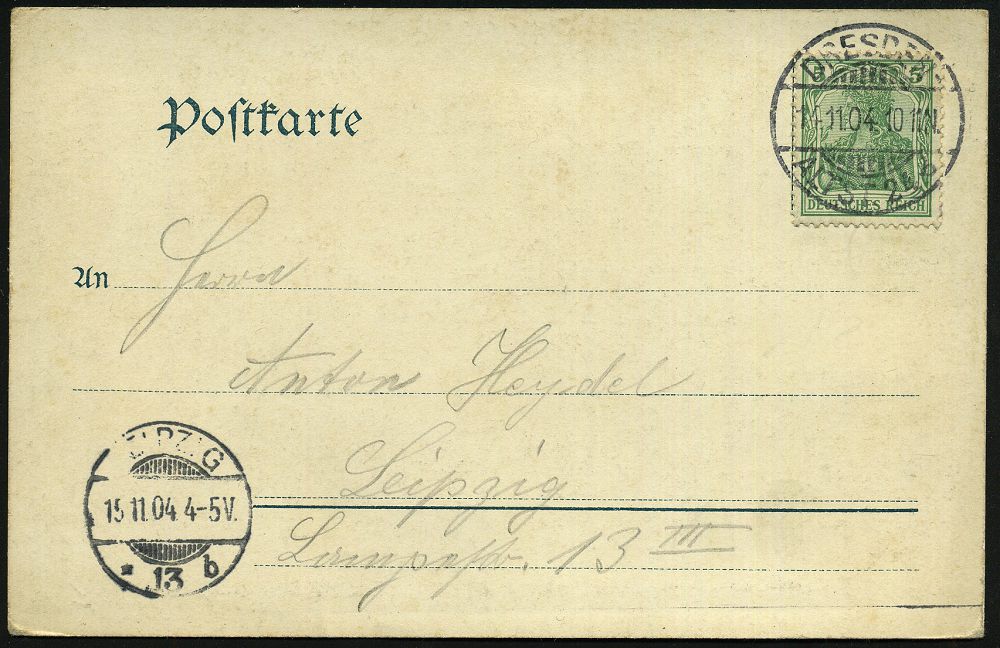 Postkarte
5 5
DEUTSCHES REICH
DRESDEN
11.04. 10 11 N.
An Herrn
Anton Heydel
Leipzig
Lampestr. 13 III
LEIPZIG
15 11.04. 4-5V.
* 13 b